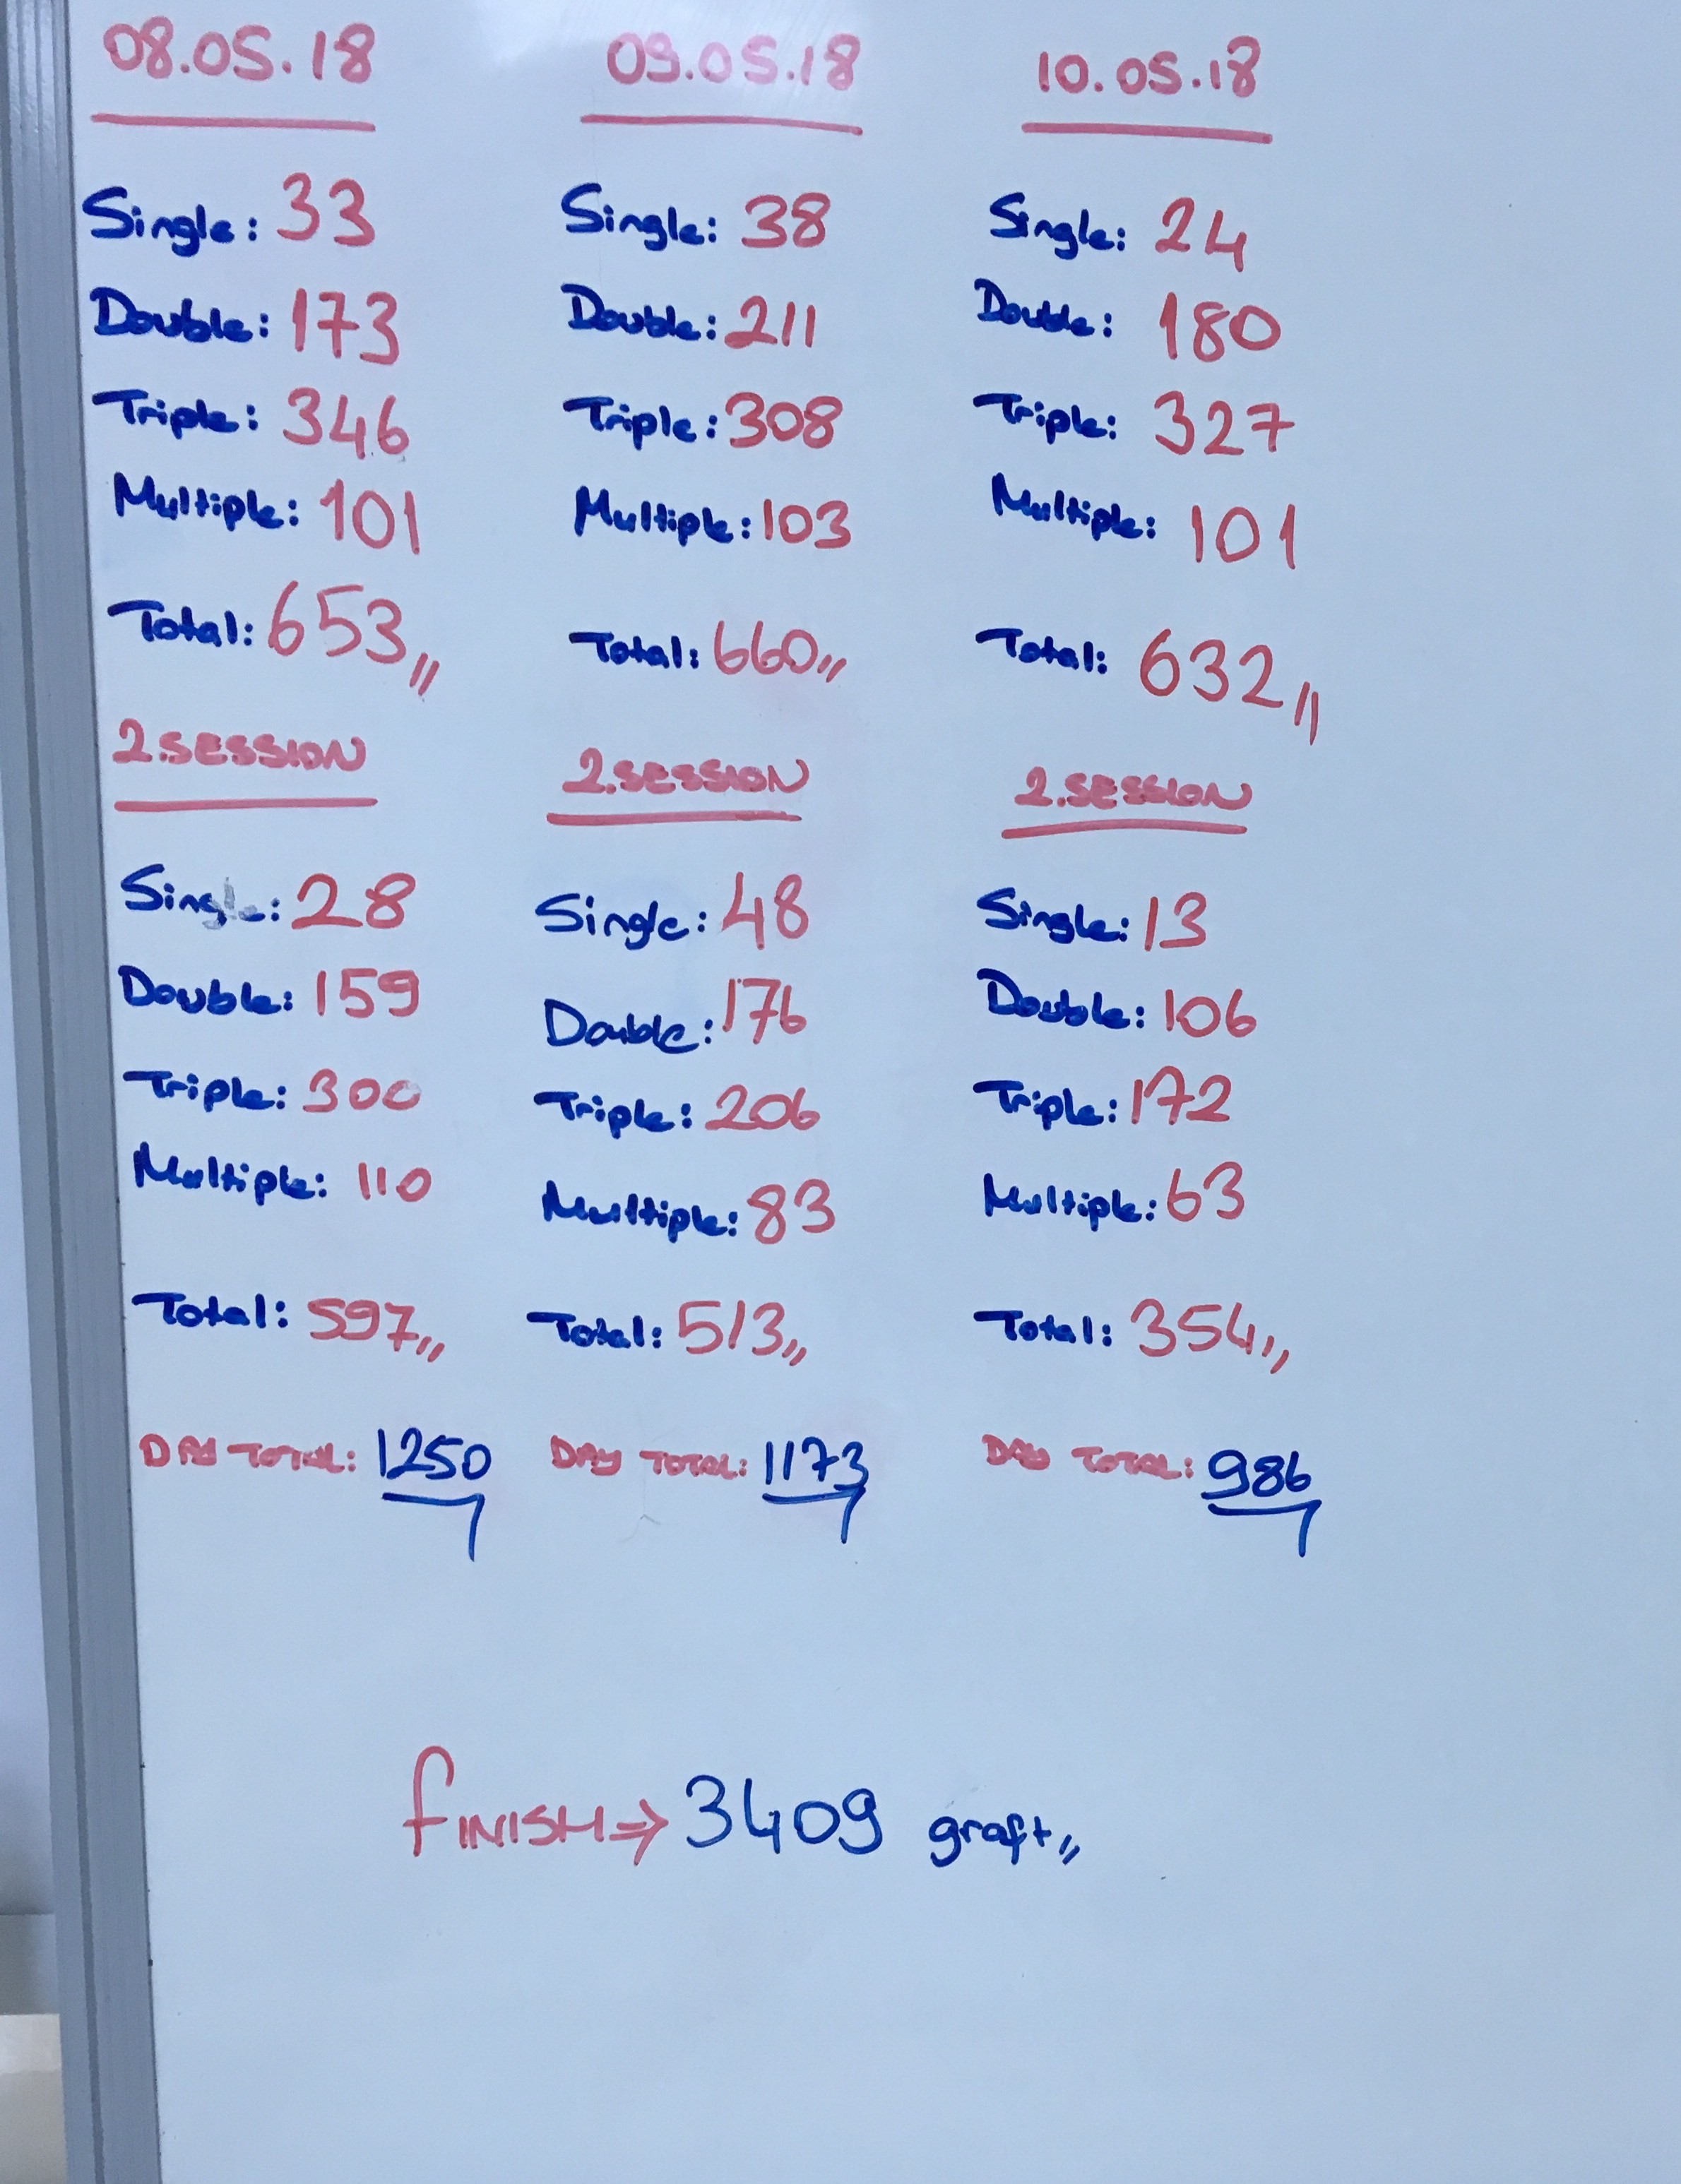 08.05.18
Single: 33
Double: 173
Triple: 346
Multiple: 101
Total: 653,,
2.SESSION
Single: 28
Double: 159
Triple: 300
Multiple: 110
Total: 597,,
DAY TOTAL: 1250
09.05.18
Single: 38
Double: 211
Triple: 308
Multiple: 103
Total: 660,,
2.SESSION
Single: 48
Double: 176
Triple: 206
Multiple: 83
Total: 513,,
DAY TOTAL: 1173
10.05.18
Single: 24
Double: 180
Triple: 327
Multiple: 101
Total: 632,,
2.SESSION
Single: 13
Double: 106
Triple: 172
Multiple: 63
Total: 354,,
DAY TOTAL: 986
FINISH⇒ 3409 graft,,